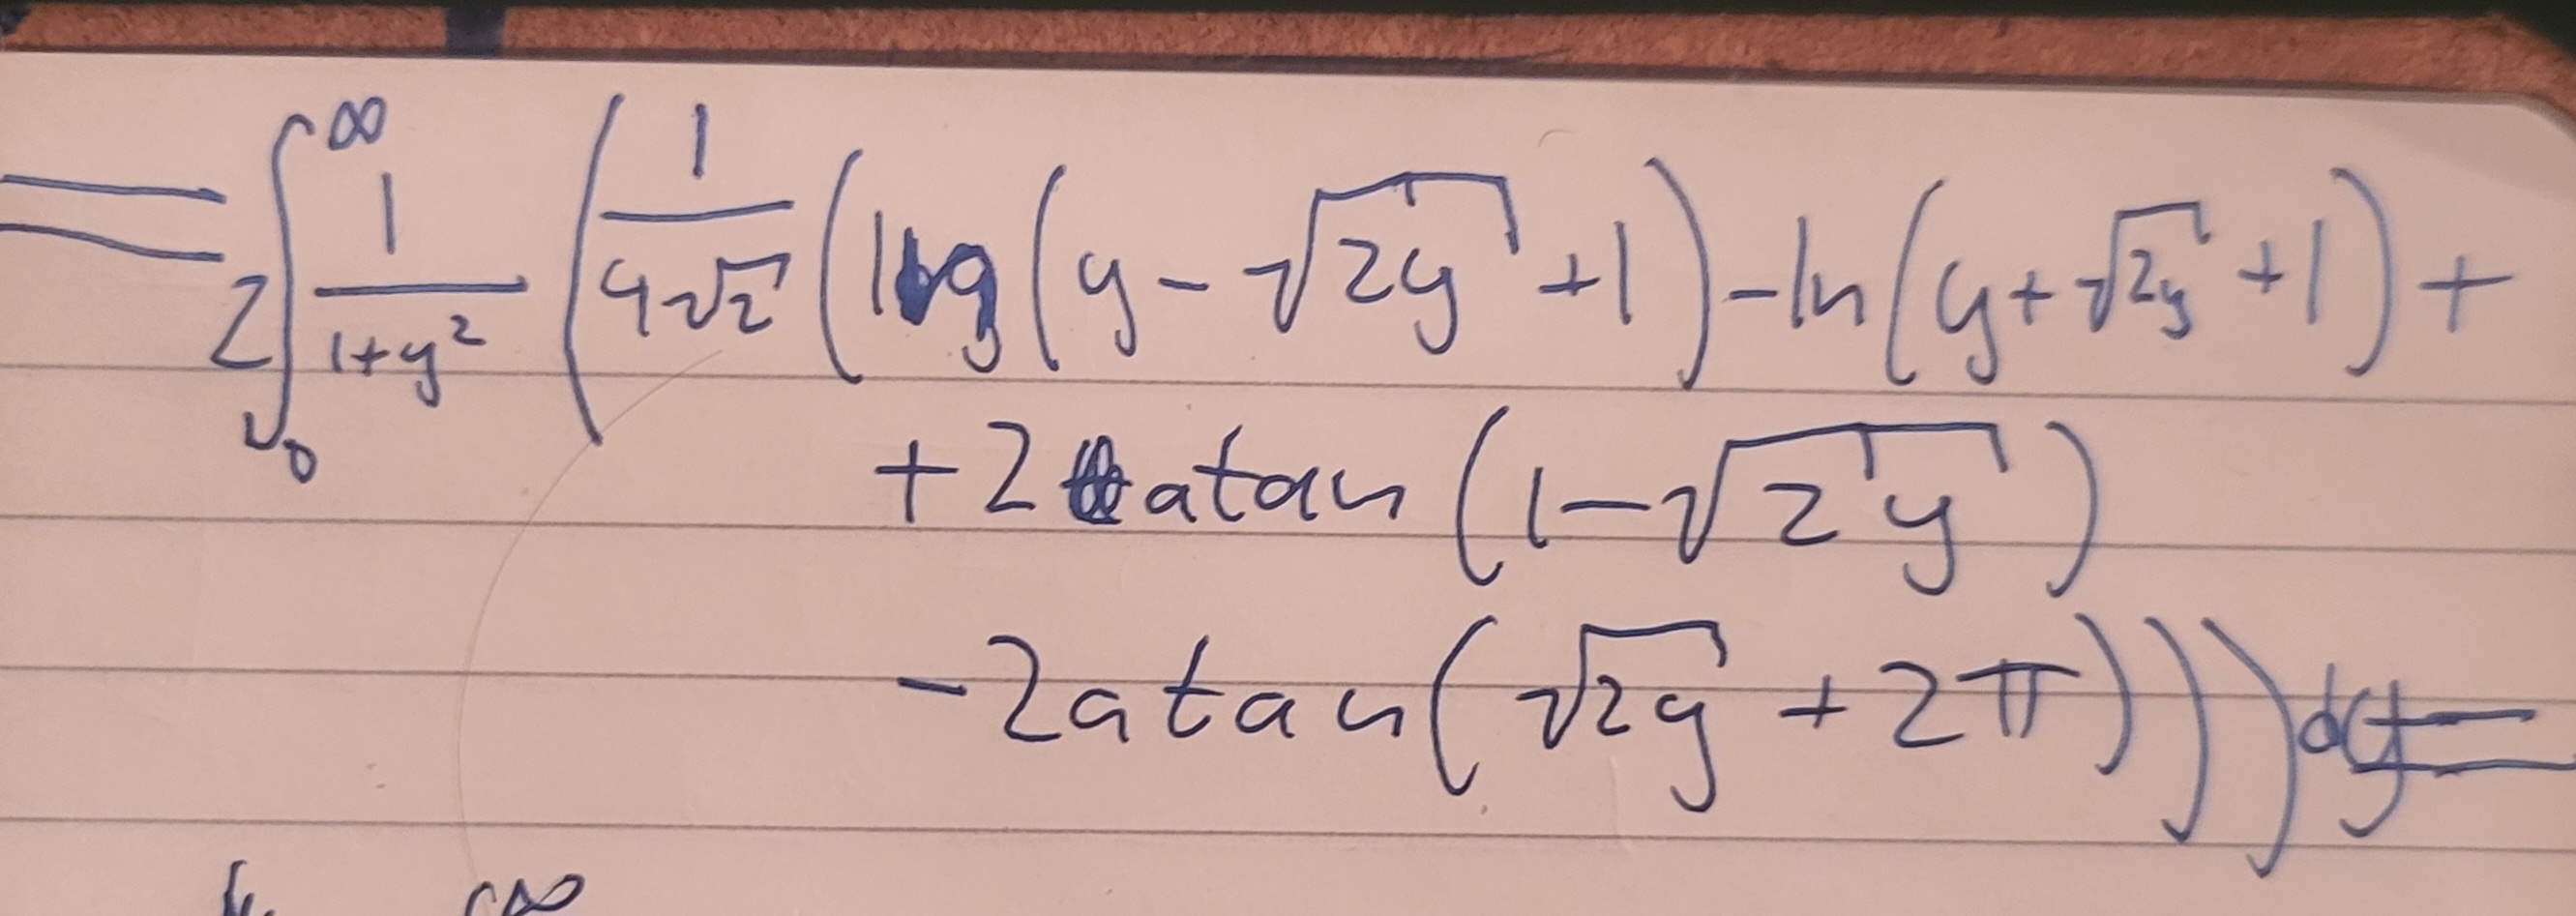 = 2∫₀^∞ 1/(1+y²) (1/(4√2) (log(y-√(2y)+1)-ln(y+√(2y)+1)+
+2 atan(1-√(2y))
-2atan(√(2y)+2π)))dy=
∞